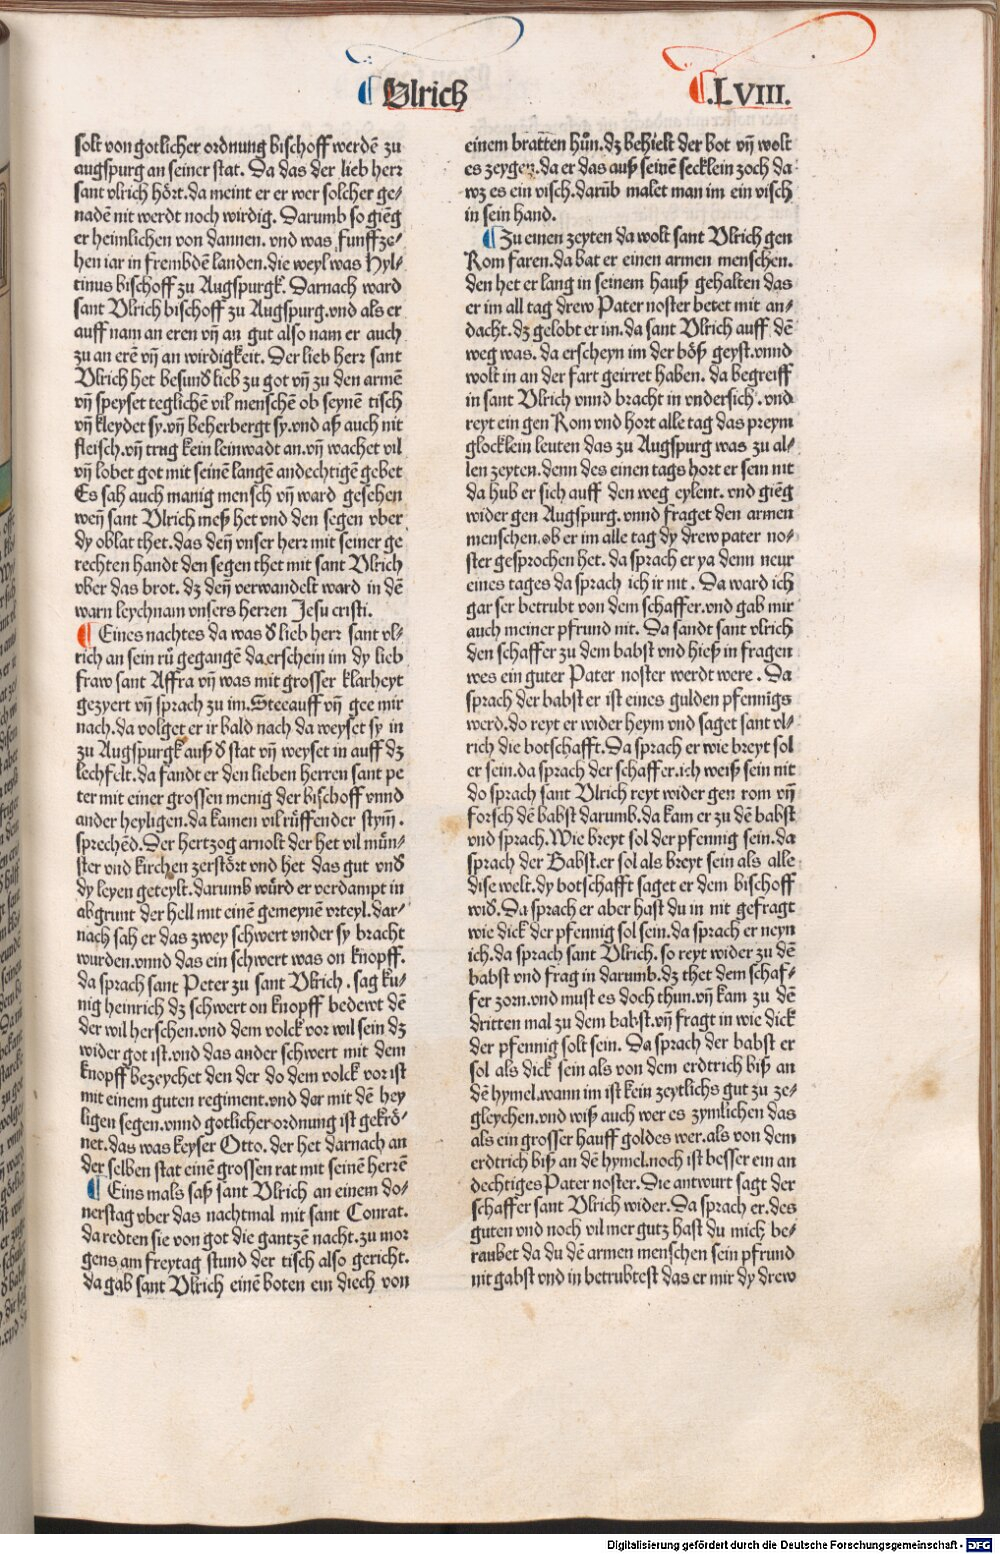 ¶ Ulrich
¶ .LVIII.
solt von gotlicher ordnung bischoff werdē zu
augspurg an seiner stat. Da das der lieb herr
sant vlrich hört.da meint er er wer solcher ge-
nadē nit werdt noch wirdig. Darumb so gieng
er heimlichen von dannen. vnd was funffze-
hen iar in frembdē landen.die weyl was Hyl-
tinus bischoff zu Augspurgk. Darnach ward
sant Vlrich bischoff zu Augspurg.vnd als er
auff nam an eren vn̄ an gut also nam er auch
zu an erē vn̄ an wirdigkeit. Der lieb herr sant
Vlrich het besund lieb zu got vn̄ zu den armē
vn̄ speyset teglichē vil menschē ob seynē tisch
vn̄ kleydet sy.vn̄ beherbergt sy.vnd aß auch nit
fleisch.vn̄ trug kein leinwadt an.vn̄ wachet vil
vn̄ lobet got mit seinē langē andechtigē gebet
Es sah auch manig mensch vn̄ ward gesehen
wen̄ sant Vlrich meß het vnd den segen vber
dy oblat thet.das den̄ vnser herr mit seiner ge
rechten handt den segen thet mit sant Vlrich
vber das brot. dz den̄ verwandelt ward in dē
warn leychnam vnsers herren Jesu cristi.
¶ Eines nachtes da was d lieb herr sant vl-
rich an sein rů gegangē da erschein im dy lieb
fraw sant Affra vn̄ was mit grosser klarheyt
gezyert vn̄ sprach zu im.Stee auff vn̄ gee mir
nach.da volget er ir bald nach da weyset sy in
zu Augspurgk auß d stat vn̄ weyset in auff dz
lechfelt.da fandt er den lieben herren sant pe
ter mit einer grossen menig der bischoff vnnd
ander heyligen.da kamen vil rüffender stym̄.
sprechēd.Der hertzog arnolt der het vil mün-
ster vnd kirchen zerstört vnd het das gut vnd
dy leyen geteylt.darumb würd er verdampt in
abgrunt der hell mit einē gemeynē vrteyl.dar-
nach sah er das zwey schwert vnder sy bracht
wurden.vnnd das ein schwert was on knopff.
da sprach sant Peter zu sant Vlrich . sag ku-
nig heinrich dz schwert on knopff bedewt dē
der wil herschen.vnd dem volck vor wil sein dz
wider got ist.vnd das ander schwert mit dem
knopff bezeychet den der do dem volck vor ist
mit einem guten regiment.vnd der mit dē hey
ligen segen.vnnd gotlicher ordnung ist gekrö-
net.das was keyser Otto. der het darnach an
der selben stat einē grossen rat mit seinē herrē
¶ Eins mals saß sant Vlrich an einem do-
nerstag vber das nachtmal mit sant Conrat.
da redten sie von got die gantzē nacht.zu mor
gens am freytag stund der tisch also gericht.
da gab sant Vlrich einē boten ein diech von
einem bratten hůn.dz behielt der bot vn̄ wolt
es zeygen.da er das auß seinē secklein zoch da
wz es ein visch.darūb malet man im ein visch
in sein hand.
¶ Zu einen zeyten da wolt sant Vlrich gen
Rom faren.da bat er einen armen menschen.
den het er lang in seinem hauß gehalten das
er im all tag drew Pater noster betet mit an-
dacht.dz gelobt er im.da sant Vlrich auff dē
weg was. da erscheyn im der böß geyst.vnnd
wolt in an der fart geirret haben. da begreiff
in sant Vlrich vnnd bracht in vndersich . vnd
reyt ein gen Rom vnd hort alle tag das preym
glocklein leuten das zu Augspurg was zu al-
len zeyten.denn des einen tags hort er sein nit
da hub er sich auff den weg eylent. vnd gieng
wider gen Augspurg. vnnd fraget den armen
menschen.ob er im alle tag dy drew pater no-
ster gesprochen het. da sprach er ya denn neur
eines tages da sprach ich ir nit . Da ward ich
gar ser betrubt von dem schaffer.vnd gab mir
auch meiner pfrund nit. Da sandt sant vlrich
den schaffer zu dem babst vnd hieß in fragen
wes ein guter Pater noster werdt were . Da
sprach der babst er ist eines gulden pfennigs
werd.do reyt er wider heym vnd saget sant vl-
rich die botschafft.Da sprach er wie breyt sol
er sein.da sprach der schaffer.ich weiß sein nit
do sprach sant Vlrich reyt wider gen rom vn̄
forsch dē babst darumb.da kam er zu dē babst
vnd sprach.Wie breyt sol der pfennig sein.da
sprach der Babst.er sol als breyt sein als alle
dise welt.dy botschafft saget er dem bischoff
wid.Da sprach er aber hast du in nit gefragt
wie dick der pfennig sol sein.da sprach er neyn
ich.da sprach sant Vlrich. so reyt wider zu dē
babst vnd frag in darumb.dz thet dem schaf-
fer zorn.vnd must es doch thun.vn̄ kam zu dē
dritten mal zu dem babst.vn̄ fragt in wie dick
der pfennig solt sein. Da sprach der babst er
sol als dick sein als von dem erdtrich biß an
dē hymel.wann im ist kein zeytlichs gut zu ze-
gleychen.vnd wiß auch wer es zymlichen das
als ein grosser hauff goldes wer.als von dem
erdtrich biß an dē hymel.noch ist besser ein an
dechtiges Pater noster. Die antwurt sagt der
schaffer sant Vlrich wider. Da sprach er.des
guten vnd noch vil mer gutz hast du mich be-
raubet da du dē armen menschen sein pfrund
nit gabst vnd in betrubtest das er mir dy drew
Digitalisierung gefördert durch die Deutsche Forschungsgemeinschaft - DFG